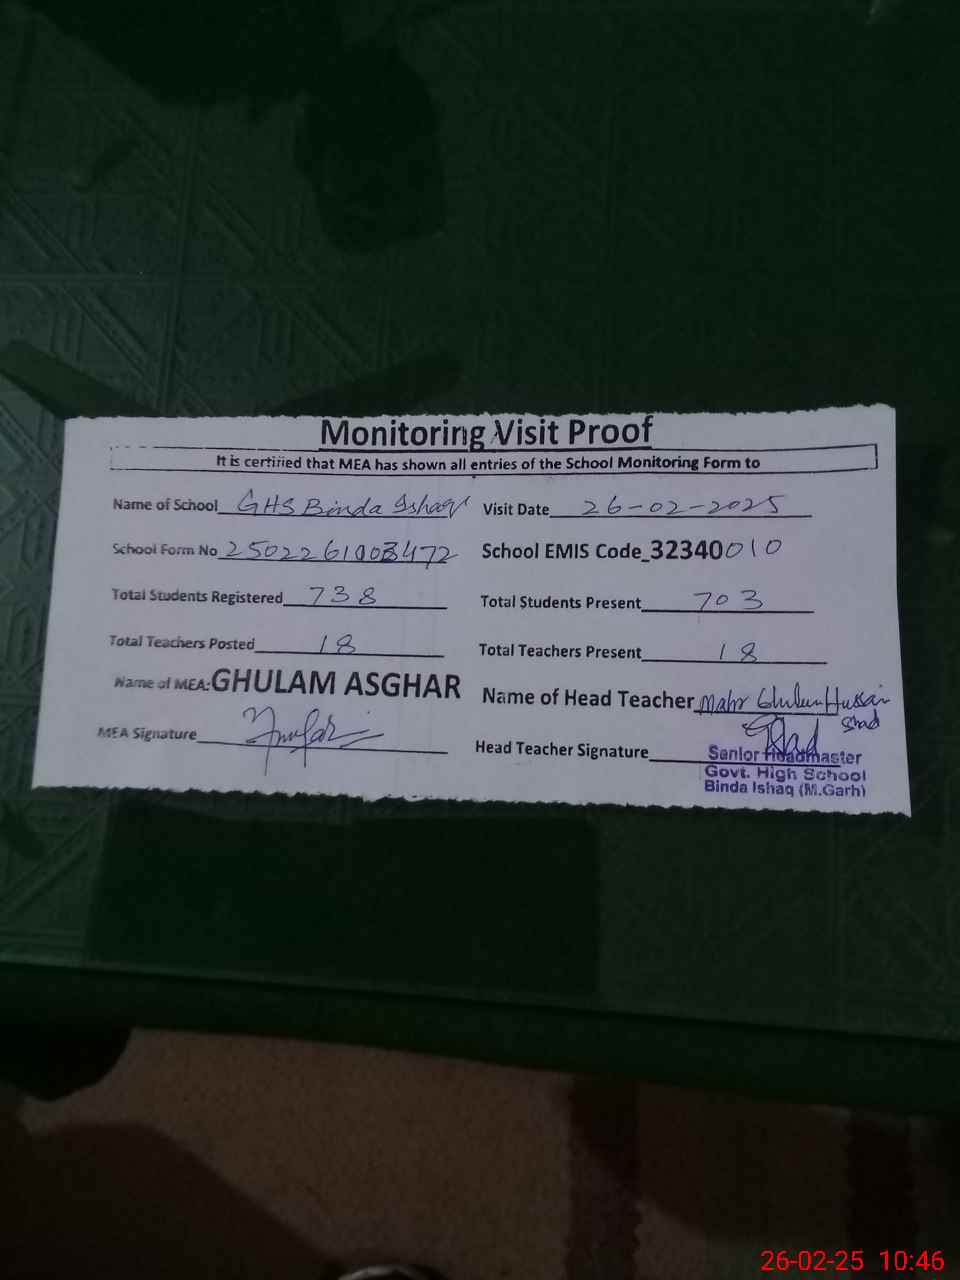 Monitoring Visit Proof
It is certified that MEA has shown all entries of the School Monitoring Form to
Name of School GHS Binda Ishaq Visit Date 26-02-2025
School Form No 2502261003472 School EMIS Code 32340010
Total Students Registered 738 Total Students Present 703
Total Teachers Posted 18 Total Teachers Present 18
Name of MEA: GHULAM ASGHAR Name of Head Teacher Mahr Ghulam Hussain
Shad
MEA Signature Head Teacher Signature
Senior Headmaster
Govt. High School
Binda Ishaq (M.Garh)
26-02-25 10:46